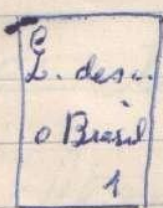 L. desc.
o Brasil
1